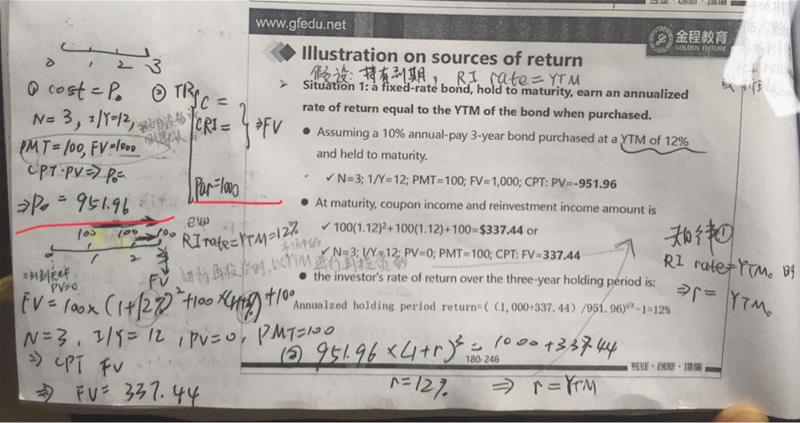 www.gfedu.net
金程教育
GOLDEN FUTURE
Illustration on sources of return
假设: 持有到期, RI rate=YTM
Situation 1: a fixed-rate bond, hold to maturity, earn an annualized
rate of return equal to the YTM of the bond when purchased.
● Assuming a 10% annual-pay 3-year bond purchased at a YTM of 12%
and held to maturity.
✓ N=3; 1/Y=12; PMT=100; FV=1,000; CPT: PV=-951.96
● At maturity, coupon income and reinvestment income amount is
✓ 100(1.12)²+100(1.12)+100=$337.44 or
✓ N=3; I/Y=12; PV=0; PMT=100; CPT: FV=337.44
● the investor's rate of return over the three-year holding period is:
Annualzed holding period return=( (1,000+337.44) /951.96)^1/3-1=12%
180-246
专业·创新·增值
0 1 2 3
① cost = P₀
N=3, I/Y=12,
PMT=100, FV=1000
CPT PV⇒P₀=
⇒P₀ = 951.96
② TR
C =
CRI =
⇒FV
Par=1000
100 100 100
0 1 2
RI rate=YTM=12%
PV=0
FV
FV=100×(1+12%)²+100×(1+12%)+100
N=3, I/Y=12, PV=0, PMT=100
⇒ CPT FV
⇒ FV=337.44
③ 951.96×(1+r)³=1000+337.44
r=12% ⇒ r=YTM
RI rate=YTM₀时
⇒r= YTM₀